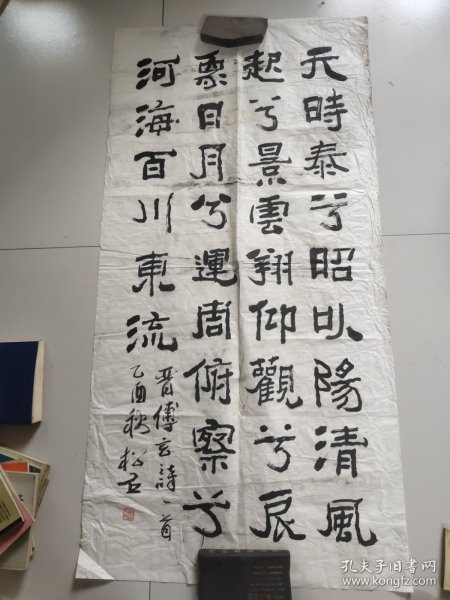 天時泰兮昭以陽清風
起兮景雲翔仰觀兮辰
象日月兮運周俯察兮
河海百川東流
晋傅玄詩一首
乙酉秋
孔夫子旧书网
www.kongfz.com